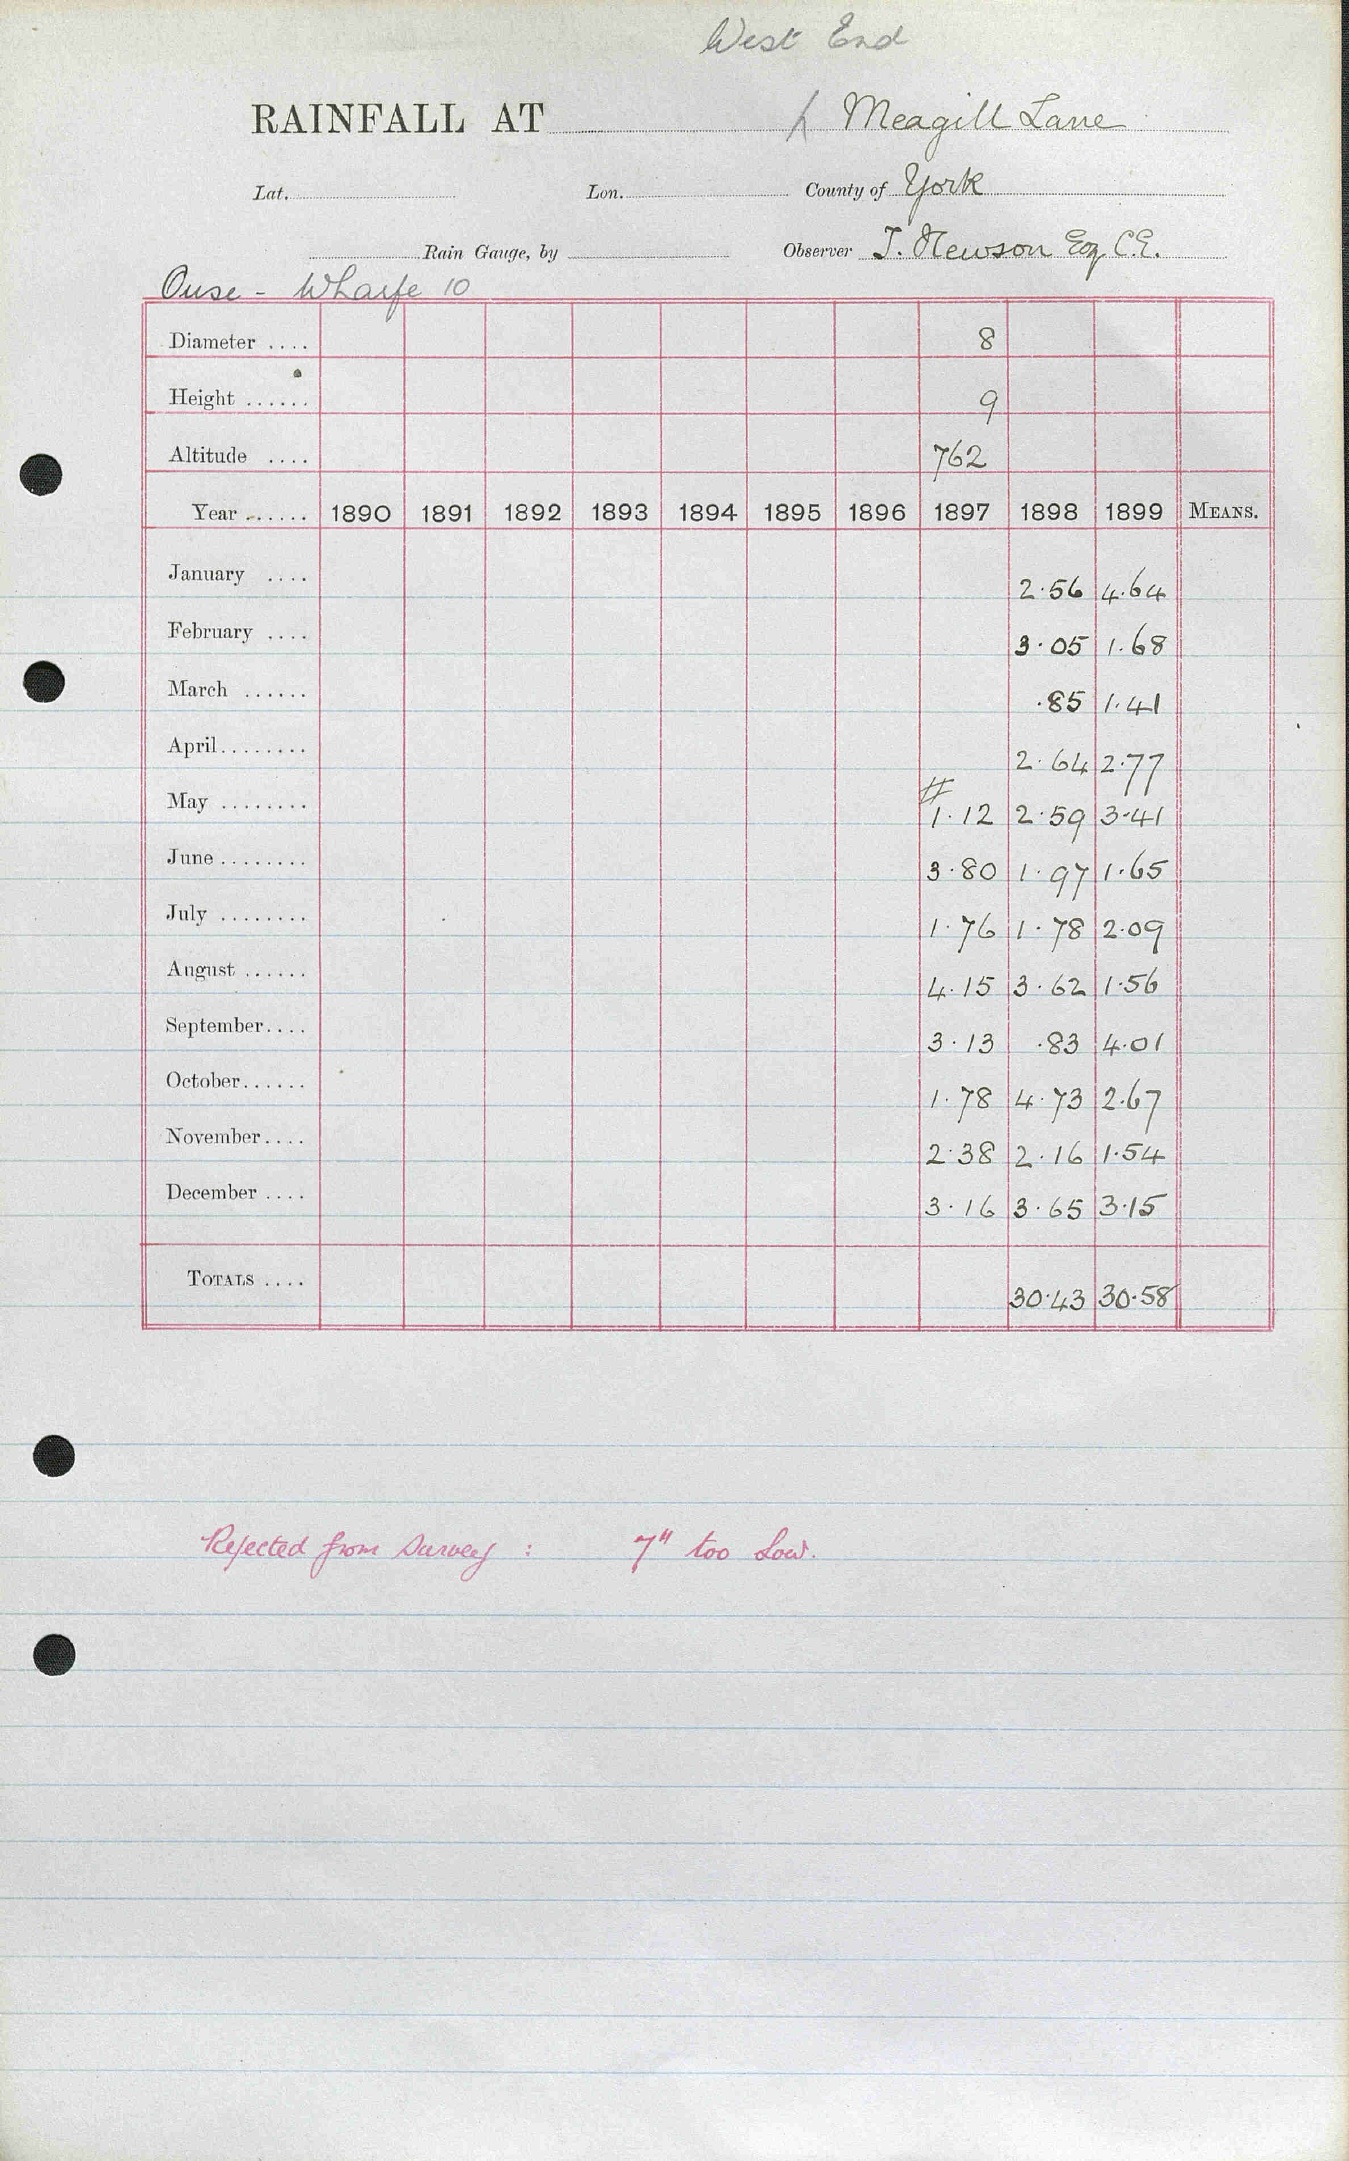 West End
RAINFALL AT Meagill Lane
Lat. Lon. County of York
Rain Gauge, by Observer T. Newson Esq. C.E.
Ouse - Wharfe 10
Diameter .... 8
Height ...... 9
Altitude .... 762
Year ...... 1890 1891 1892 1893 1894 1895 1896 1897 1898 1899 MEANS.
January .... 2.56 4.64
February .... 3.05 1.68
March ...... .85 1.41
April........ 2.64 2.77
#
May ........ 1.12 2.59 3.41
June ........ 3.80 1.97 1.65
July ........ 1.76 1.78 2.09
August ...... 4.15 3.62 1.56
September.... 3.13 .83 4.01
October...... 1.78 4.73 2.67
November.... 2.38 2.16 1.54
December .... 3.16 3.65 3.15
TOTALS .... 30.43 30.58
Rejected from Survey : 7" too low.